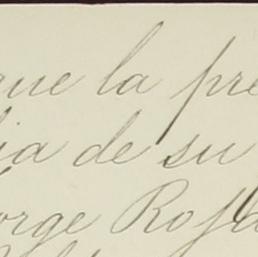 que la pre
ia de su
orge Ro